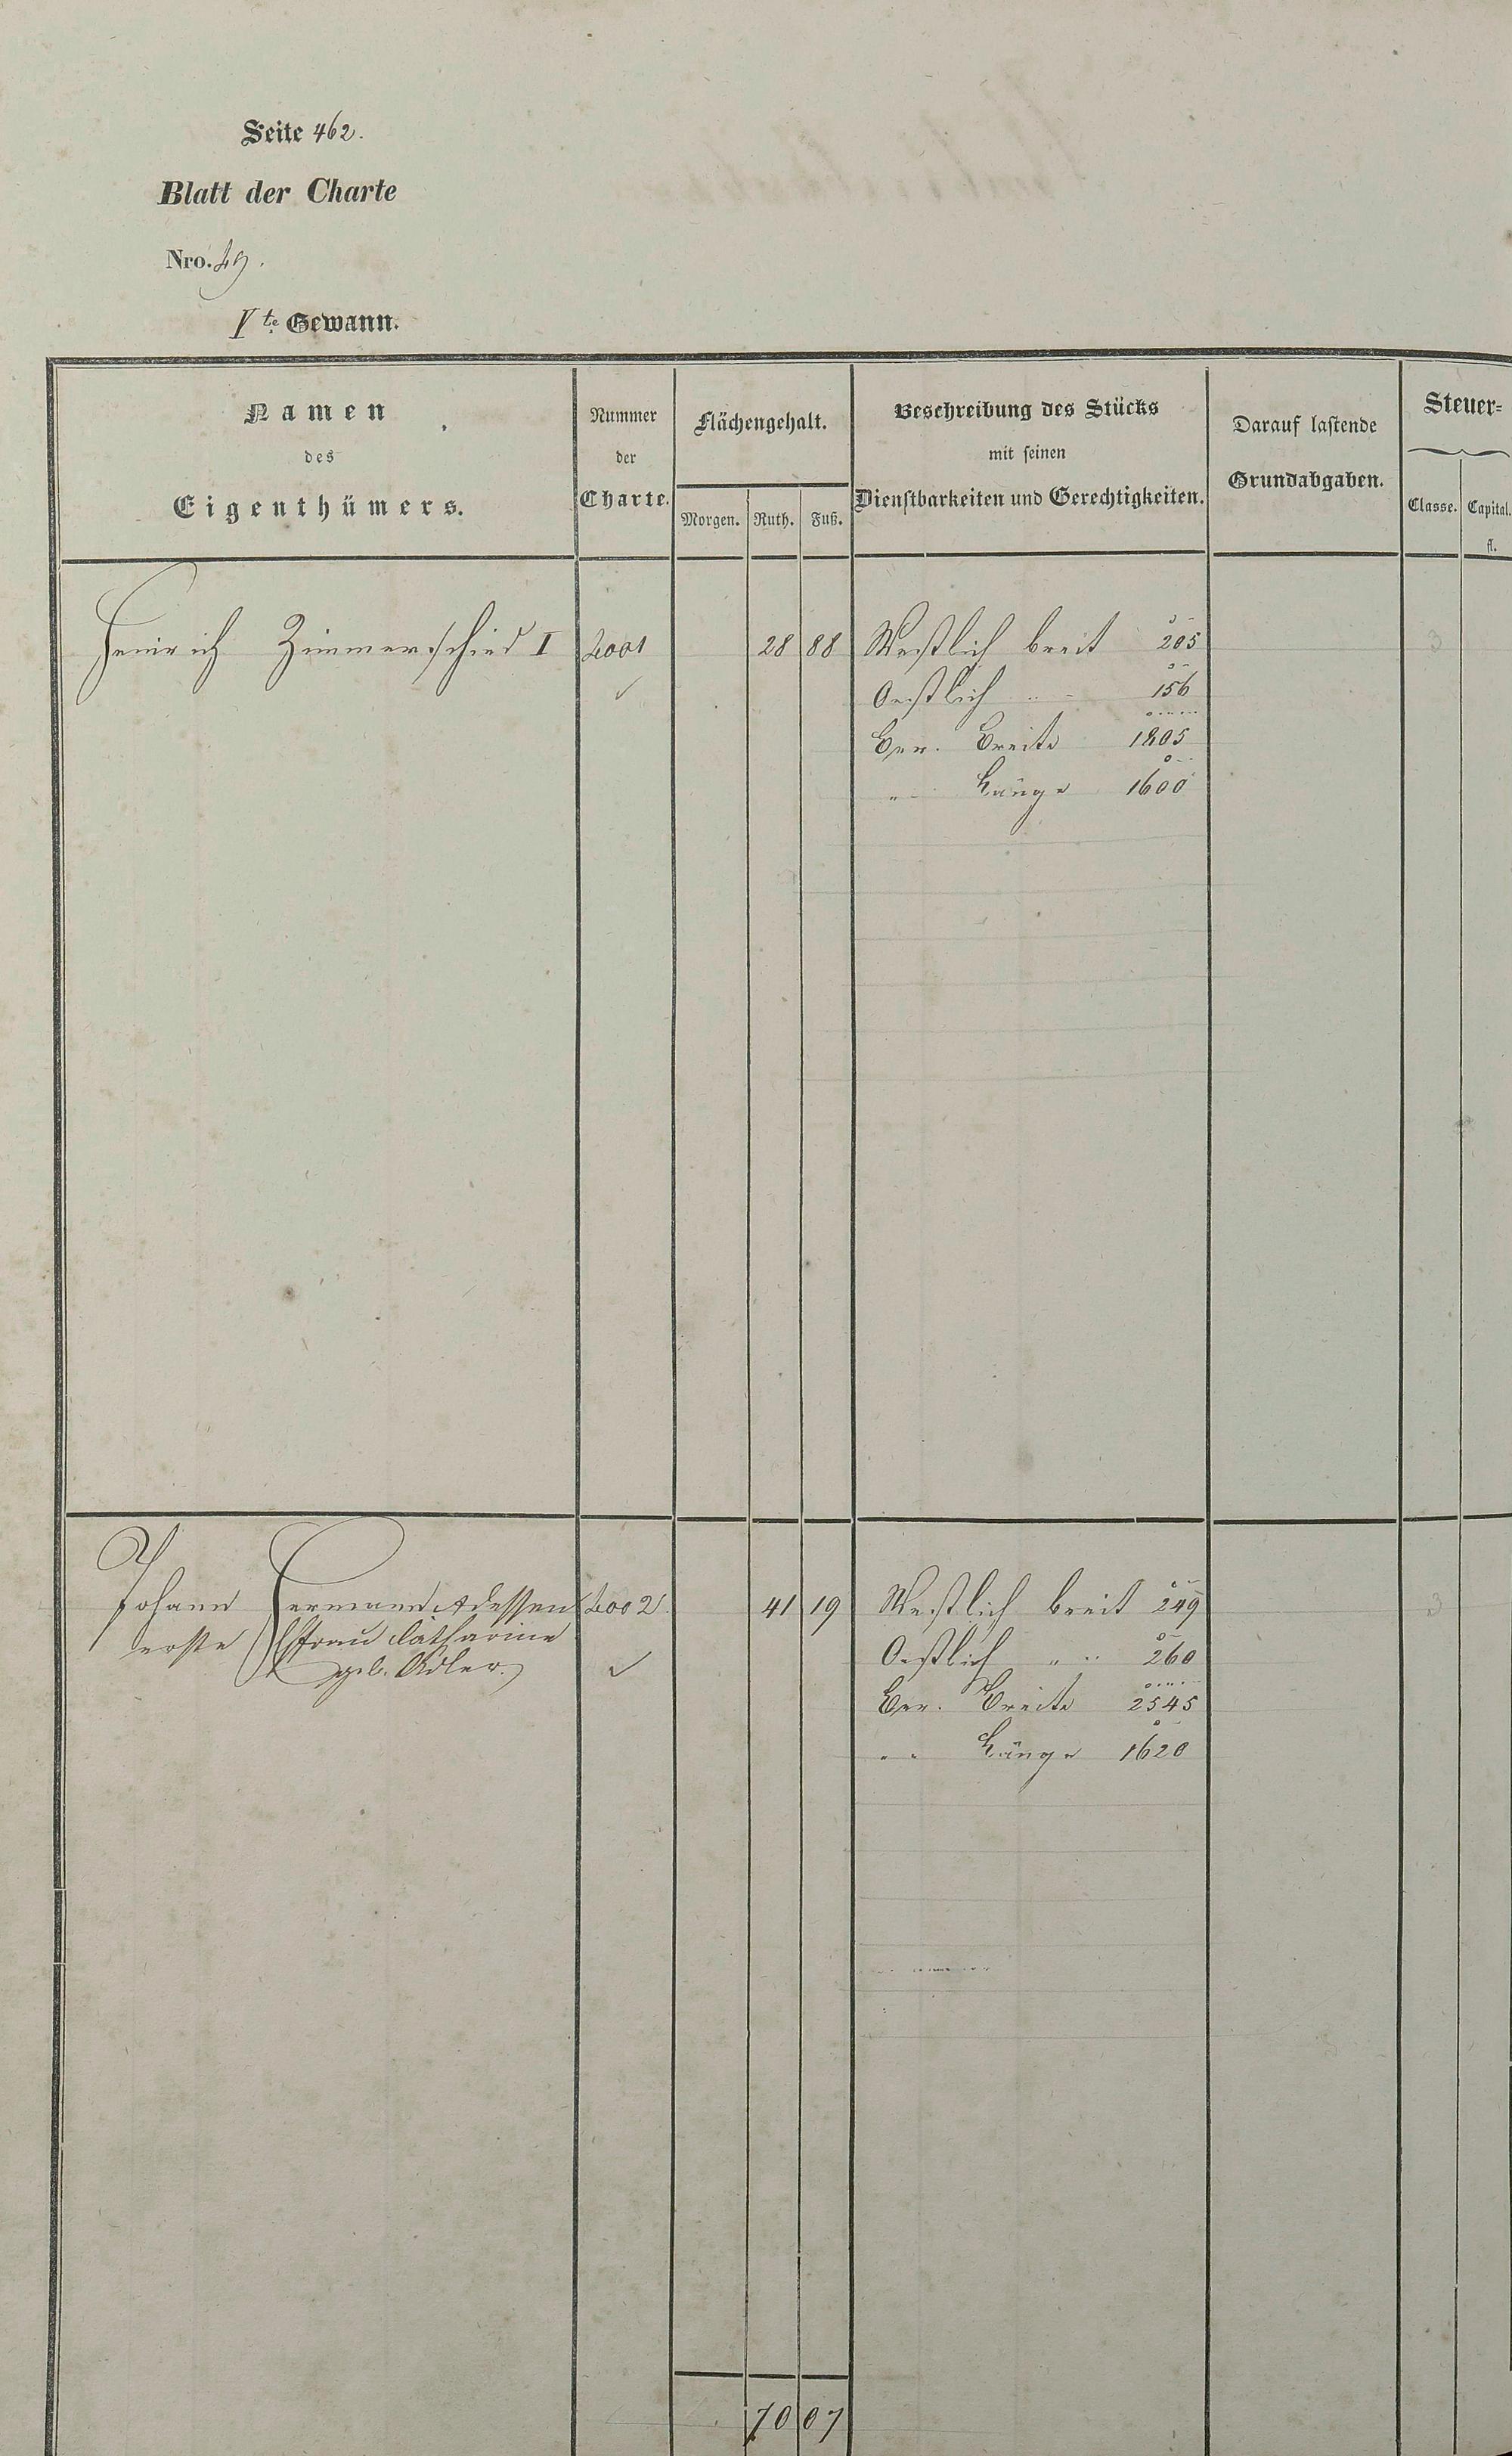 Seite 462.
Blatt der Charte
Nro. 49.
Vte Gewann.
Namen
des
Eigenthümers.
Nummer
der
Charte.
Flächengehalt.
Morgen. Ruth. Fuß.
Beschreibung des Stücks
mit seinen
Dienstbarkeiten und Gerechtigkeiten.
Darauf lastende
Grundabgaben.
Steuer-
Classe. Capital.
fl.
Heinrich Zimmerschied I 4001 28 88 Westlich breit 205 3
✓ Oestlich " - 156
Ber. Breite 1805
" Länge 1600
Johann Hermann & dessen 4002. 41 19 Westlich breit 249 3
erste Ehfrau Catharine
Oestlich " " 260
geb. Adler. ✓
Ber. Breite 2545
" " Länge 1620
70 07